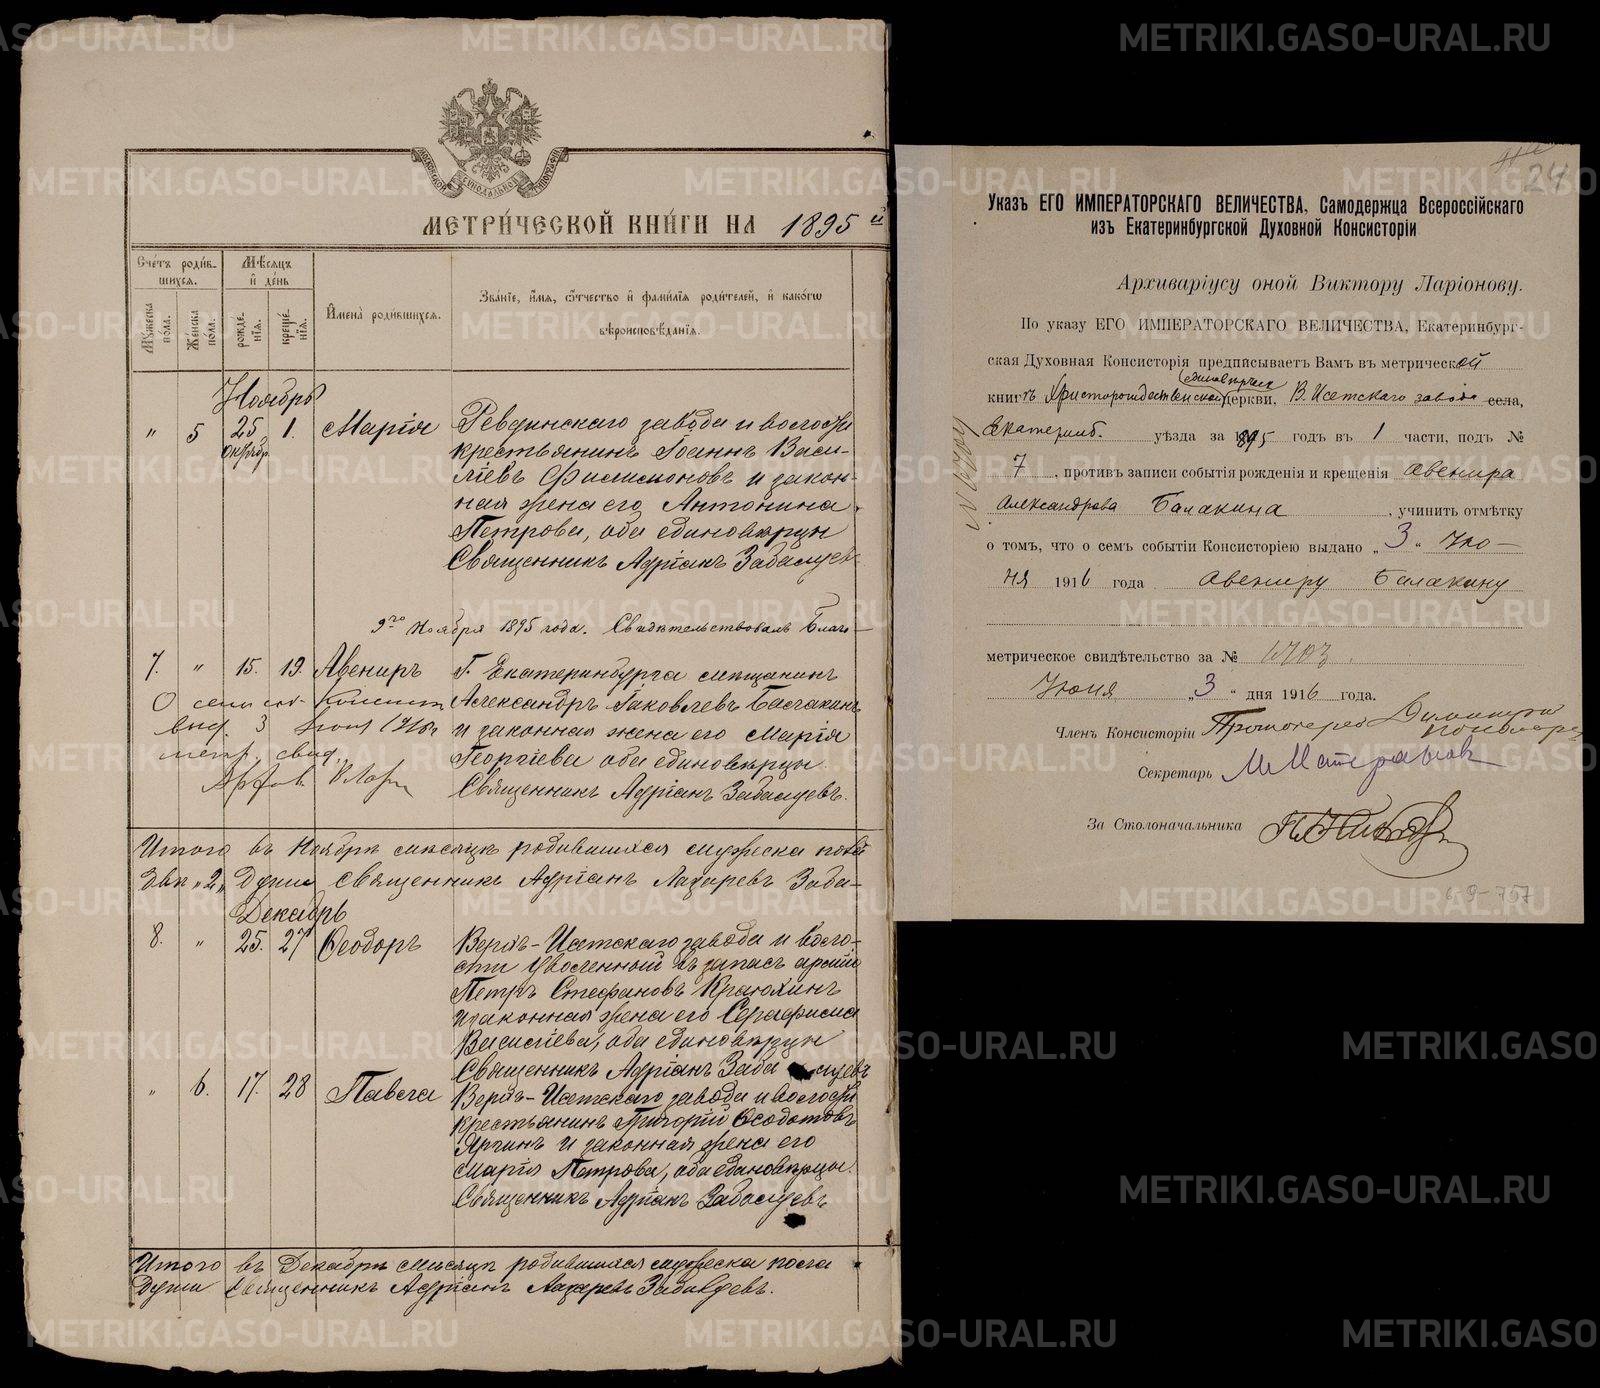 МЕТРИ́ЧЕСКОЙ КНИ́ГИ НА 1895 й
Сче́тъ роди́в-
шихся.
Мѣ́сяцъ
и҆ де́нь
Му́жеска
по́ла.
Же́нска
по́ла.
рожде́-
нїя.
креще́-
нїя.
И҆мена̀ роди́вшихся.
Зва́нїе, и҆́мя, ѻ҆́тчество и҆ фами́лїя роди́телей, и҆ како́гѡ
вѣроисповѣ́данїя.
Ноябрь
" 5 25 Октябр. 1. Марія
Ревдинскаго завода и волости
крестьянинъ Іоаннъ Васи-
ліевъ Филимоновъ и закон-
ная жена его Антонина
Петрова, оба единовѣрцы
Священникъ Адріанъ
9го Ноября 1895 года. Свидѣтельствовалъ Благо-
7. " 15. 19. Авениръ
Г. Екатеринбурга мѣщанинъ
Александръ Іаковлевъ Балакинъ
и законная жена его Марія
Георгіева оба единовѣрцы
Священникъ Адріанъ
О семъ соб. Консист.
выд. 3 Іюня 1916 г.
метр. свид.
Итого въ Ноябрѣ мѣсяцѣ родившихся мужеска пола
двѣ „2„ Души Священникъ Адріанъ Лазаревъ
Декабрь
8. " 25. 27 Ѳеодоръ
Верхъ-Исетскаго завода и воло-
сти уволенный въ запасъ арміи
Петръ Стефановъ Краюхинъ
и законная жена его Серафима
Василіева, оба единовѣрцы
Священникъ Адріанъ
" 6. 17. 28 Павла
Верхъ-Исетскаго завода и волости
крестьянинъ Григорій Ѳеодотовъ
Яргинъ и законная жена его
Марія Петрова, оба единовѣрцы.
Священникъ Адріанъ
Итого въ Декабрѣ мѣсяцѣ родившихся мужеска пола
Души Священникъ Адріанъ Лазаревъ
24
Указъ ЕГО ИМПЕРАТОРСКАГО ВЕЛИЧЕСТВА, Самодержца Всероссійскаго
изъ Екатеринбургской Духовной Консисторіи
Архиваріусу оной Виктору Ларіонову.
По указу ЕГО ИМПЕРАТОРСКАГО ВЕЛИЧЕСТВА, Екатеринбург-
ская Духовная Консисторія предписываетъ Вамъ въ метрической
единовѣрческ.
книгѣ Христорождественской церкви, В. Исетскаго завода села,
Екатеринб. уѣзда за 1895 годъ въ 1 части, подъ №
7, противъ записи событія рожденія и крещенія Авенира
Александрова Балакина, учинить отмѣтку
о томъ, что о семъ событіи Консисторіею выдано „3“ Iю-
ня 1916 года Авениру Балакину
метрическое свидѣтельство за №
Іюня „3“ дня 1916 года.
Членъ Консисторіи Протоіерей Димитрій
Секретарь
За Столоначальника
METRIKI.GASO-URAL.RU